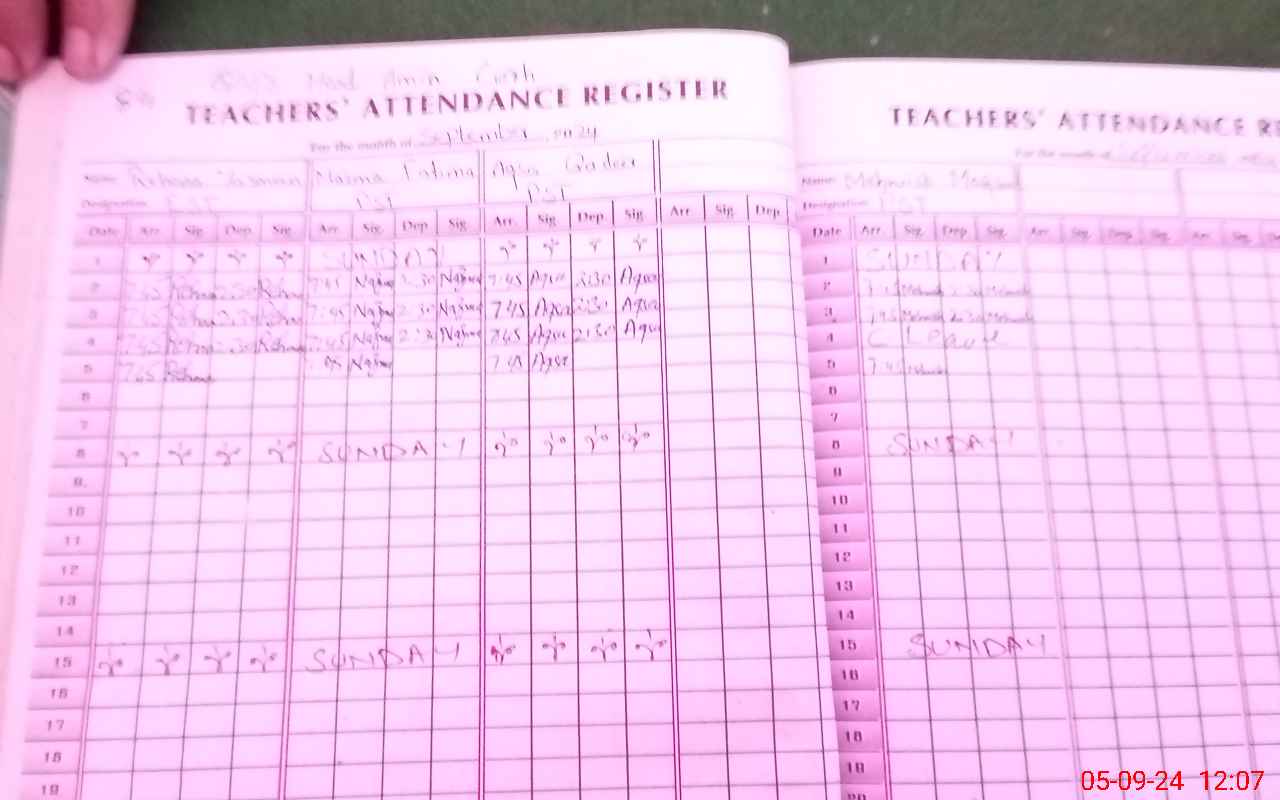 TEACHERS' ATTENDANCE REGISTER
For the month of September 2024
Name Rehana Yasmeen Najma Fatima Aqsa Qadeer
Designation PST PST
Date Arr. Sig. Dep. Sig. Arr. Sig. Dep. Sig. Arr. Sig. Dep. Sig. Arr. Sig. Dep.
1 SUNDAY
2 7:45 Rehana 2:30 Rehana 7:45 Najma 2:30 Najma 7:45 Aqsa 2:30 Aqsa
3 7:45 Rehana 2:30 Rehana 7:45 Najma 2:30 Najma 7:45 Aqsa 2:30 Aqsa
4 7:45 Rehana 2:30 Rehana 7:45 Najma 2:30 Najma 7:45 Aqsa 2:30 Aqsa
5 7:45 Rehana 7:45 Najma 7:45 Aqsa
6
7
8 SUNDAY
9
10
11
12
13
14
15 SUNDAY
16
17
18
19
TEACHERS' ATTENDANCE RE
For the month of
Name Mehwish
Designation PST
Date Arr. Sig. Dep. Sig. Arr. Sig. Dep. Sig. Arr. Sig. De
1 SUNDAY
2 7:45 Mehwish 2:30 Mehwish
3 7:45 Mehwish 2:30 Mehwish
4 C Leave
5 7:45 Mehwish
6
7
8 SUNDAY
9
10
11
12
13
14
15 SUNDAY
16
17
18
19
20
05-09-24 12:07